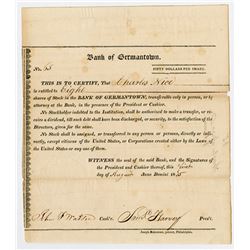 Bank of Germantown.
No. 65
FIFTY DOLLARS PER SHARE.
THIS IS TO CERTIFY, That Charles Nice
is entitled to Eight
shares of Stock in the BANK OF GERMANTOWN, transferrable only in person, or by
attorney at the Bank, in the presence of the President or Cashier.
No Stockholder indebted to the Institution, shall be authorized to make a transfer, or receive
a dividend, till such debt shall have been discharged, or security, to the satisfaction of the
Directors, given for the same.
No Stock shall be assigned, or transferred to any person or persons, directly or indirectly,
except citizens of the United States, or Corporations created either by the Laws of
the United States or any one of them.
WITNESS the seal of the said Bank, and the Signatures
of the President and Cashier thereof, this
day of August Anno Domini 18
Cash'r. Saml Harvey Presd't.